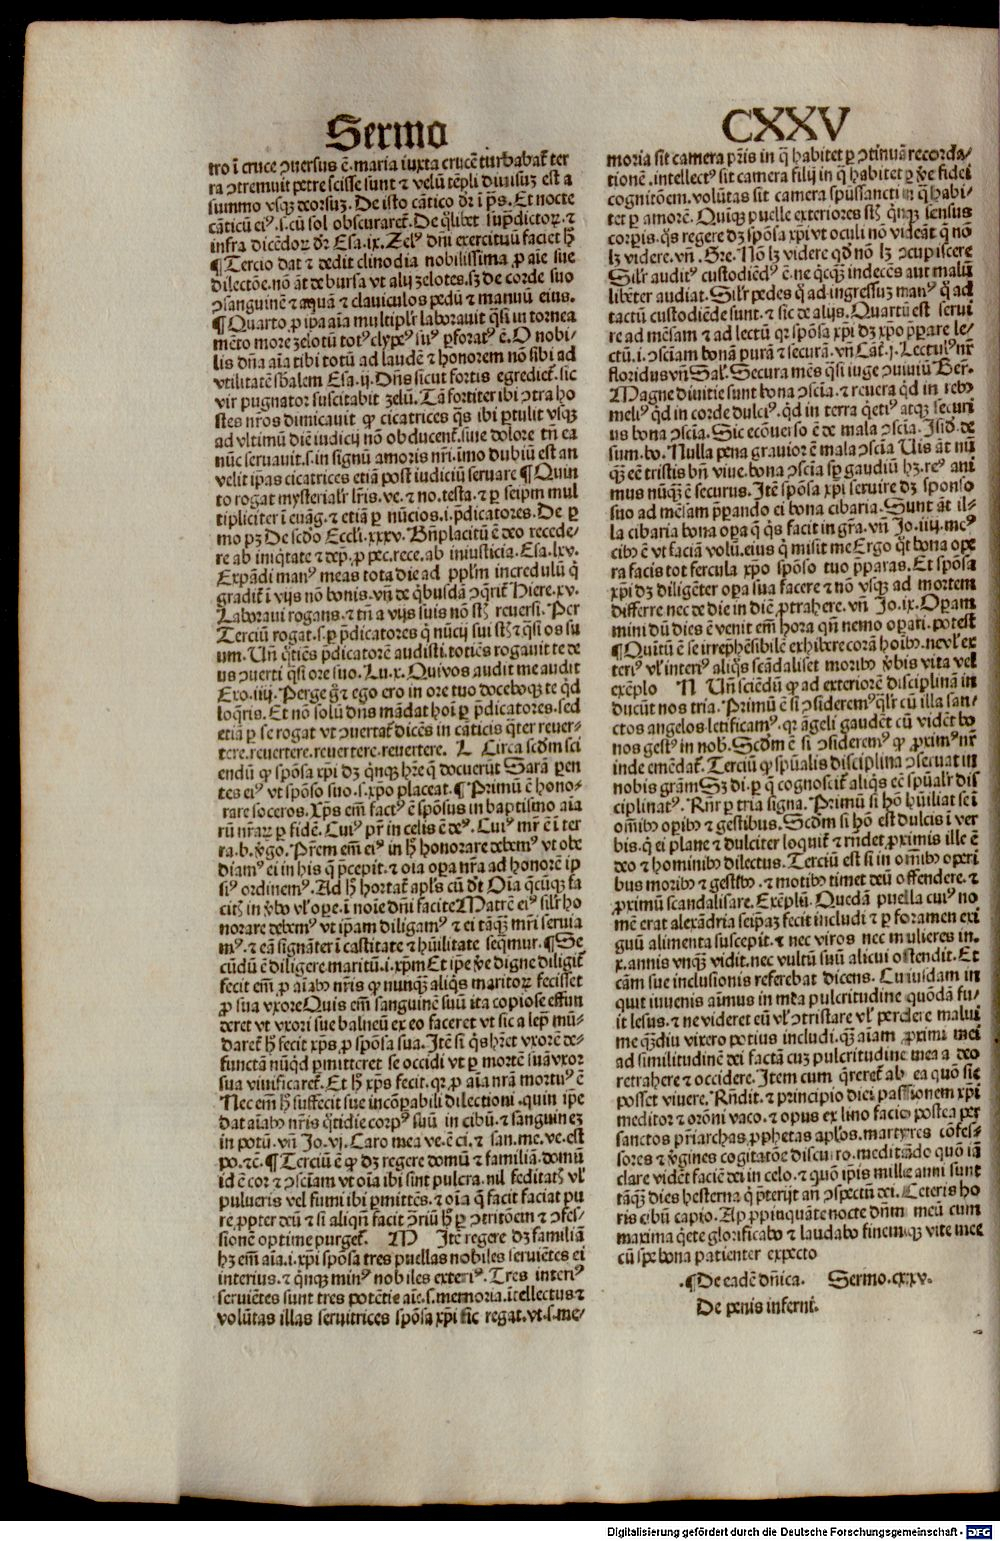 Sermo
CXXV
tro ī cruce ꝯuersus ē. maria iuxta crucē turbabat᷑ ter
ra ꝯtremuit petre scisse sunt ⁊ velū tēpli diuisuꝫ est a
summo vsqꝫ deorsuꝫ. De isto cātico dr̄ ī ps̄. Et nocte
cāticū eiꝰ .s. cū sol obscuraret᷑. De q̄libet sup̄dictoꝝ. ⁊
infra dicēdoꝝ dr̄ Esa. ix. Zelꝰ dn̄i exercituū faciet h̄
¶ Tercio dat ⁊ dedit clinodia nobilissima ꝓ aīe sue
dilectōe. nō āt de bursa vt alij zelotes. sꝫ de corde suo
ꝯsanguinē ⁊ aquā ⁊ clauiculos pedū ⁊ manuū eius.
¶ Quarto ꝓ ip̄a aīa multiplr̄ laborauit q̄si in tornea
mēto more zelotū totꝰ clypeꝰ suꝰ ꝑforatꝰ ē. O nobi-
lis dn̄a aīa tibi totū ad laudē ⁊ honorem nō sibi ad
vtilitatē Esa. ij. Dn̄s sicut fortis egrediet᷑. sic
vir pugnator suscitabit zelū. Tā fortiter ibi ꝯtra ho
stes nr̄os dimicauit ꝙ cicatrices q̄s ibi ꝑtulit vsqꝫ
ad vltimū diē iudicij nō obducent᷑. siue dolore tn̄ ea
nūc seruauit. s. in signū amoris nr̄i. imo dubiū est an
velit ip̄as cicatrices etiā post iudiciū seruare ¶ Quin
to rogat mysterialr̄ lr̄is. ve. ⁊ no. testa. ⁊ ꝑ seip̄m mul
tipliciter ī euāg. ⁊ etiā ꝑ nūcios .i. p̄dicatores. De ꝑ
mo pꝫ De scd̄o Eccl̄i. xxxv. Bn̄placitū ē deo recede-
re ab iniq̄tate ⁊ dep̄. ꝓ pec. rece. ab iniusticia. Esa. lxv.
Expādi manꝰ meas tota die ad pplm̄ incredulū q̄
gradit᷑ ī vijs nō bonis. vn̄ de q̄busdā ꝯq̄rit᷑ Hiere. xv.
Laboraui rogans. ⁊ tn̄ a vijs suis nō st̄ reuersi. Per
Terciū rogat. s. ꝑ p̄dicatores q̄ nūcij sui st̄ ⁊ q̄si os su
um. Un̄ q̄tiēs p̄dicatorē audisti. totiēs rogauit te de
us ꝯuerti q̄si ore suo. Lu. x. Qui vos audit me audit
Exo. iiij. Perge g̊ ⁊ ego ero in ore tuo doceboqꝫ te q̄d
loq̄ris. Et nō solū dn̄s mādat hoī ꝑ p̄dicatores. sed
etiā ꝑ se rogat vt ꝯuertat᷑ dicēs in cāticis q̄ter reuer-
tere. reuertere. reuertere. reuertere. L Circa scd̄m sci
endū ꝙ spōsa xp̄i dꝫ q̄nqꝫ hr̄e q̄ docuerūt Sarā ꝑen
tes eiꝰ vt spōso suo. s. xp̄o placeat. ¶ Primū ē hono-
rare soceros. Xp̄s em̄ factꝰ ē spōsus in baptismo aīa
rū nr̄aꝝ ꝑ fidē. Cuiꝰ pr̄ in celis ē deꝰ. Cuiꝰ mr̄ ē ī ter
ra. b. v̄go. Pr̄em em̄ eiꝰ in h̄ honorare debemꝰ vt obe
diamꝰ ei in his q̄ p̄cepit. ⁊ oīa oꝑa nr̄a ad honorē ip
siꝰ ordinemꝰ. Ad h̄ hortat᷑ apl̄s cū dt̄ Oīa q̄cūqꝫ fa
cit in v̄bo vl̓ oꝑe. ī noīe dn̄i facite Matrē eiꝰ silr̄ ho
norare debemꝰ vt ip̄am diligamꝰ ⁊ ei tāqꝫ mr̄i serua
mꝰ. ⁊ eā signāter ī castitate ⁊ hūilitate seq̄mur. ¶ Se
cūdū ē diligere maritū. i. xp̄m Et ip̄e v̄e digne diligit᷑
fecit em̄ ꝓ aīabꝰ nr̄is ꝙ nunqꝫ aliq̄s maritoꝝ fecisset
ꝓ sua vxore Quis em̄ sanguinē suū ita copiose effun
deret vt vxori sue balneū ex eo faceret vt sic a lep̄ mū-
daret᷑ h̄ fecit xp̄s ꝓ spōsa sua. Itē si q̄s hr̄et vxorē de-
functā nūq̄d ꝑmitteret se occidi vt ꝑ mortē suā vxor
sua viuificaret᷑. Et h̄ xp̄s fecit. qꝛ ꝓ aīa nrā mortuꝰ ē
Nec em̄ h̄ suffecit sue incōꝑabili dilectioni. quin ip̄e
dat aīabꝰ nr̄is q̄tidie corpꝰ suū in cibū. ⁊ sanguinez
in potū. vn̄ Jo. vj. Caro mea ve. ē ci. ⁊ san. me. ve. est
po. ⁊c̄. ¶ Terciū ē ꝙ dꝫ regere domū ⁊ familiā. domū
id ē cor ⁊ ꝯsciam vt oīa ibi sint pulcra. nil feditat̄ vl̓
pulueris vel fumi ibi ꝑmittēs. ⁊ oīa q̄ facit faciat pu
re ꝓpter deū ⁊ si aliqn̄ facit ꝯ̄riū h̄ ꝑ ꝯtritōem ⁊ ꝯfes-
sionē optime purget᷑. M Itē regere dꝫ familiā
hꝫ em̄ aīa. i. xp̄i spōsa tres puellas nobiles seruiētes ei
interius. ⁊ q̄nqꝫ minꝰ nobiles exteriꝰ. Tres interiꝰ
seruiētes sunt tres potētie aīe. s. memoria. ītellectus ⁊
volūtas illas seruitrices spōsa xp̄i sic regat. vt. s. me-
moria sit camera pr̄is in q̄ habitet ꝑ ꝯtinuā recorda-
tionē. intellectꝰ sit camera filij in q̄ habitet ꝑ v̄e fidei
cognitōem. volūtas sit camera sp̄ussancti in q̄ habi-
tet ꝑ amorē. Quinqꝫ puelle exteriores st̄ q̄nqꝫ sensus
corꝑis. q̄s regere dꝫ spōsa xp̄i vt oculi nō videāt q̄ nō
lꝫ videre. vn̄ . Gre. Nō lꝫ videre qd̄ nō lꝫ ꝯcupiscere
Silr̄ auditꝰ custodiēdꝰ ē. ne q̄cqꝫ indecēs aut malū
libēter audiat. Silr̄ pedes q̄ ad ingressuꝫ manꝰ q̄ ad
tactū custodiēde sunt. ⁊ sic de alijs. Quartū est serui
re ad mēsam ⁊ ad lectū qꝛ spōsa xp̄i dꝫ xp̄o p̄parare le-
ctū. i. ꝯsciam bonā purā ⁊ securā. vn̄ Cāt. j. Lectulꝰ nr̄
floridus vn̄ Sal̓. Secura mēs q̄si iuge ꝯuiuiū Ber.
Magne diuitie sunt bona ꝯscīa. ⁊ reuera q̄d in rebꝰ
meliꝰ q̄d in corde dulciꝰ. q̄d in terra q̄etiꝰ atqꝫ securi
us bona ꝯscīa. Sic ecōuerso ē de mala ꝯscīa. Isid. de
sum. bo. Nulla pena grauior ē mala ꝯscīa Uis āt nū
qꝫ eē tristis bn̄ viue. bona ꝯscīa sꝑ gaudiū hꝫ. reꝰ ani
mus nūqꝫ ē securus. Itē spōsa xp̄i seruire dꝫ sponso
suo ad mēsam p̄parando ei bona cibaria. Sunt āt il-
la cibaria bona oꝑa q̄ q̄s facit in gr̄a. vn̄ Jo. iiij. meꝰ
cibꝰ ē vt faciā volū. eius q̄ misit me Ergo q̄t bona oꝑe
ra facis tot fercula xp̄o spōso tuo p̄paras. Et spōsa
xp̄i dꝫ diligēter oꝑa sua facere ⁊ nō vsqꝫ ad mortem
differre nec de die in diē ꝓtrahere. vn̄ Jo. ix. Oꝑam
mini dū dies ē venit em̄ hora qn̄ nemo oꝑari. potest
¶ Quītū ē se irrep̄hēsibilē exhibere corā hoībꝰ. ne vl̓ ex
teriꝰ vl̓ interiꝰ aliq̄s scādaliset moribꝰ v̄bis vita vel
exēplo N Un̄ sciēdū ꝙ ad exteriorē disciplinā in
ducūt nos tria. Primū ē si ꝯsideremꝰ q̄lr̄ cū illa san-
ctos angelos letificamꝰ. qꝛ āgeli gaudēt cū vidēt bo
nos gestꝰ in nob̄. Scd̄m ē si ꝯsideremꝰ ꝙ ꝓximꝰ nr̄
inde emēdat᷑. Terciū ꝙ sp̄ualis disciplina ꝯseruat in
nobis grām Sꝫ di. ꝑ q̄ cognoscit᷑ aliq̄s eē sp̄ualr̄ dis
ciplinatꝰ. Rn̄r ꝑ tria signa. Primū si hō hūiliat se ī
oībꝰ oꝑibꝰ ⁊ gestibus. Scd̄m si hō est dulcis ī ver
bis. q̄ ei plane ⁊ dulciter loquit᷑ ⁊ rn̄det ꝓximis ille ē
deo ⁊ hominibꝰ dilectus. Terciū est si in oībꝰ operi
bus moribꝰ ⁊ gestibꝰ. ⁊ motibꝰ timet deū offendere. ⁊
ꝓximū scandalisare. Exēplū. Quedā puella cuiꝰ no
mē erat alexādria seip̄aꝫ fecit includi ⁊ ꝑ foramen exi
guū alimenta suscepit. ⁊ nec viros nec mulieres in.
x. annis vnqꝫ vidit. nec vultū suū alicui ostendit. Et
cām sue inclusionis referebat dicens. Cuiusdam in
quit iuuenis aīmus in mea pulcritudine quōdā fu-
it lesus. ⁊ ne videret eū vl̓ ꝯtristare vl̓ perdere malui
me qꝫdiu vixero potius includi. qꝫ aīam ꝓximi mei
ad similitudinē dei factā cuꝫ pulcritudine mea a deo
retrahere ⁊ occidere. Item cum q̄reret᷑ ab ea quō sic
posset viuere. Rn̄dit. ⁊ principio diei passionem xp̄i
meditor ⁊ orōni vaco. ⁊ opus ex lino facio postea per
sanctos pr̄iarchas ꝓphetas apl̄os. martyres cōfes-
sores ⁊ v̄gines cogitatōe discurro. meditādo quō iā
clare vidēt faciē dei in celo. ⁊ quō ip̄is mille anni sunt
tāqꝫ dies hesterna q̄ p̄terijt an̄ ꝯspectū dei. Ceteris ho
ris cibū capio. Apꝓpinquāte nocte dn̄m meū cum
maxima q̄ete glorificabo ⁊ laudabo finemqꝫ vite mee
cū spe bona patienter expecto
¶ De eadē dn̄ica. Sermo. cxxv.
De penis inferni.
Digitalisierung gefördert durch die Deutsche Forschungsgemeinschaft - DFG